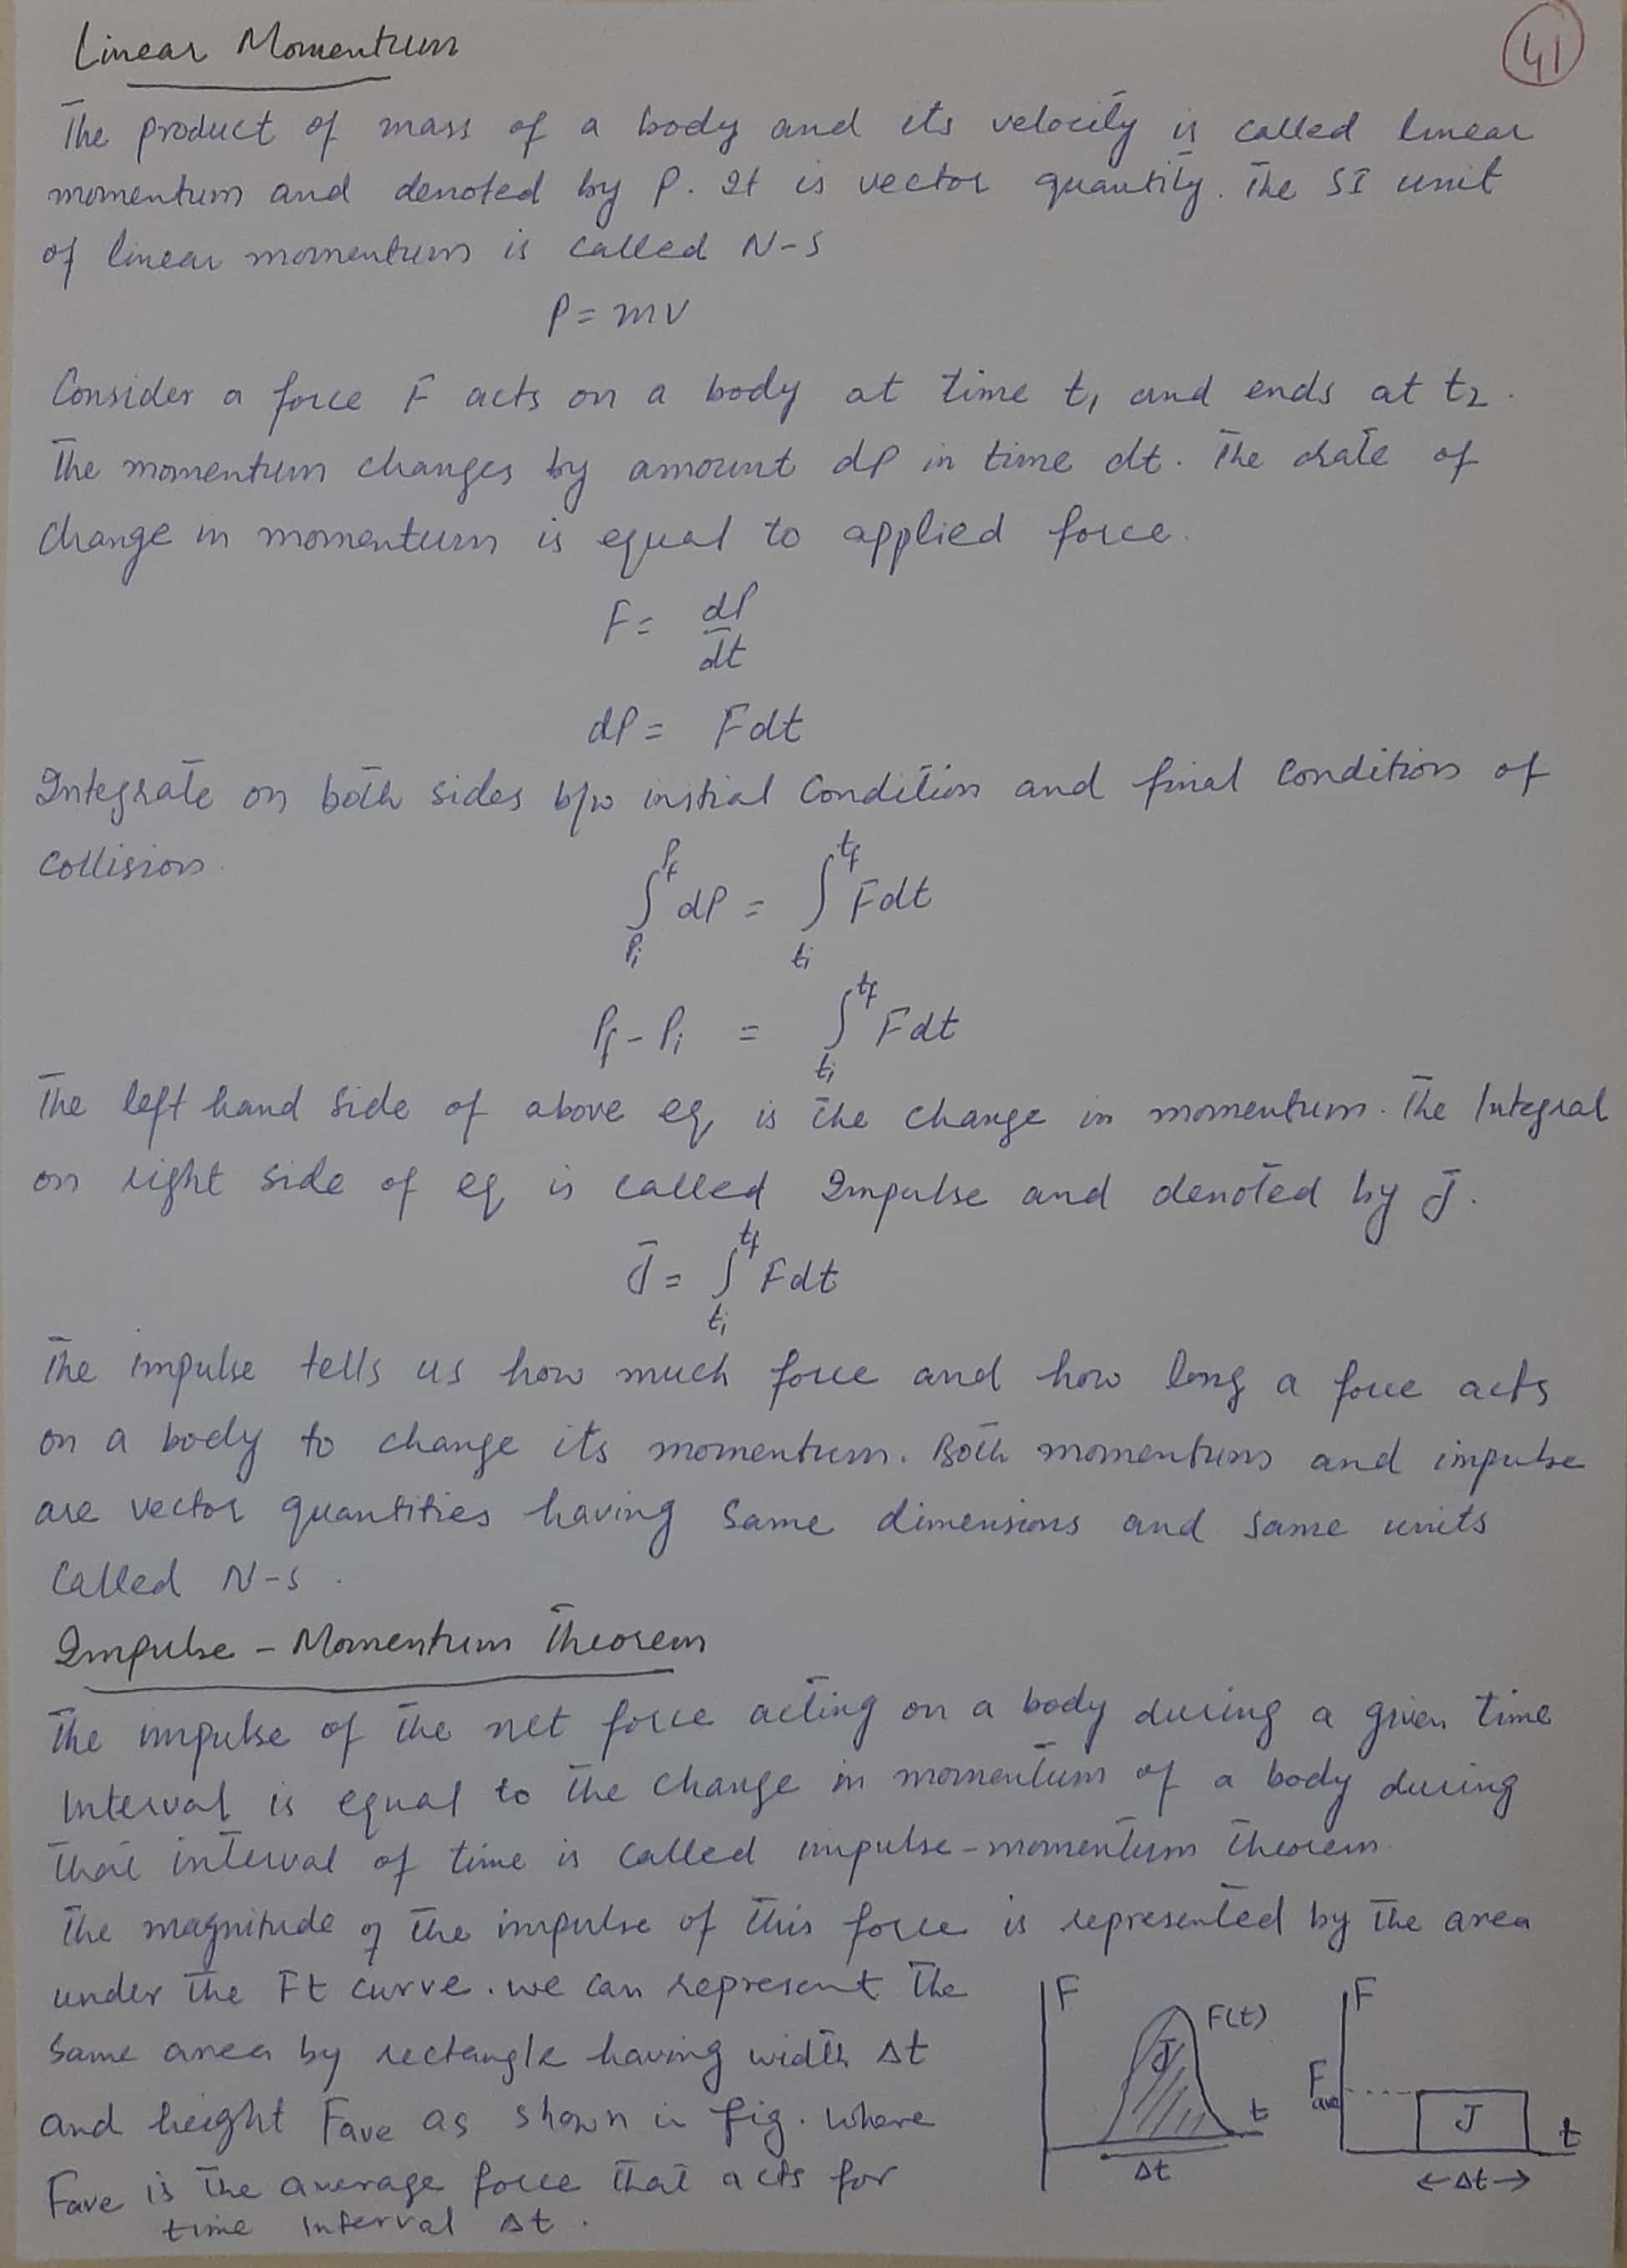 Linear Momentum
41
The product of mass of a body and its velocity is called linear
momentum and denoted by P. It is vector quantity. The SI unit
of linear momentum is called N-S
P = mv
Consider a force F acts on a body at time t₁ and ends at t₂.
The momentum changes by amount dP in time dt. The rate of
change in momentum is equal to applied force.
F = dP/dt
dP = Fdt
Integrate on both sides b/w initial condition and final condition of
collision.
∫_{Pi}^{Pf} dP = ∫_{ti}^{tf} Fdt
Pf - Pi = ∫_{ti}^{tf} Fdt
The left hand side of above eq is the change in momentum. The Integral
on right side of eq is called Impulse and denoted by J̄.
J̄ = ∫_{ti}^{tf} Fdt
The impulse tells us how much force and how long a force acts
on a body to change its momentum. Both momentum and impulse
are vector quantities having same dimensions and same units
called N-s.
Impulse - Momentum Theorem
The impulse of the net force acting on a body during a given time
Interval is equal to the change in momentum of a body during
that interval of time is called impulse-momentum theorem.
The magnitude of the impulse of this force is represented by the area
under the Ft curve. we can represent the
same area by rectangle having width Δt
and height Fave as shown in fig. where
Fave is the average force that acts for
time interval Δt.
F
F(t)
J
t
Δt
F
Fave
J
t
←Δt→